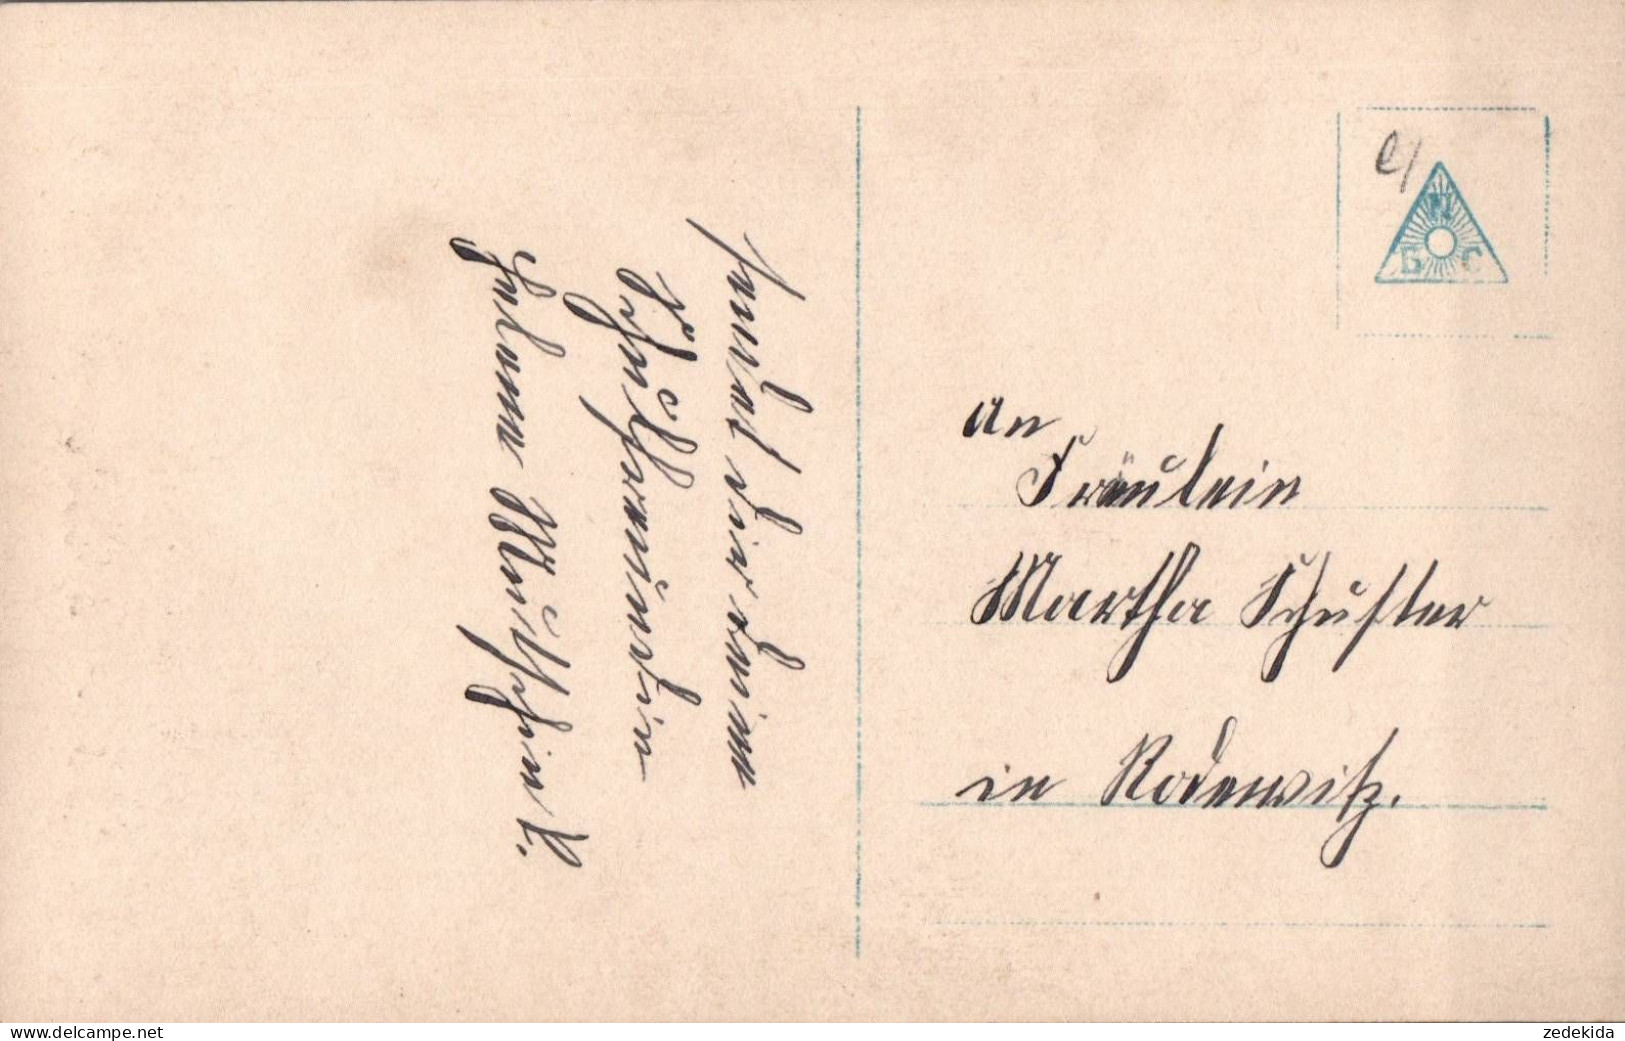 sendet dir deine
Schulfreundin
Helene
An
Fräulein
Martha Schuster
in Rodewitz.
N
B C
www.delcampe.net
zedekida